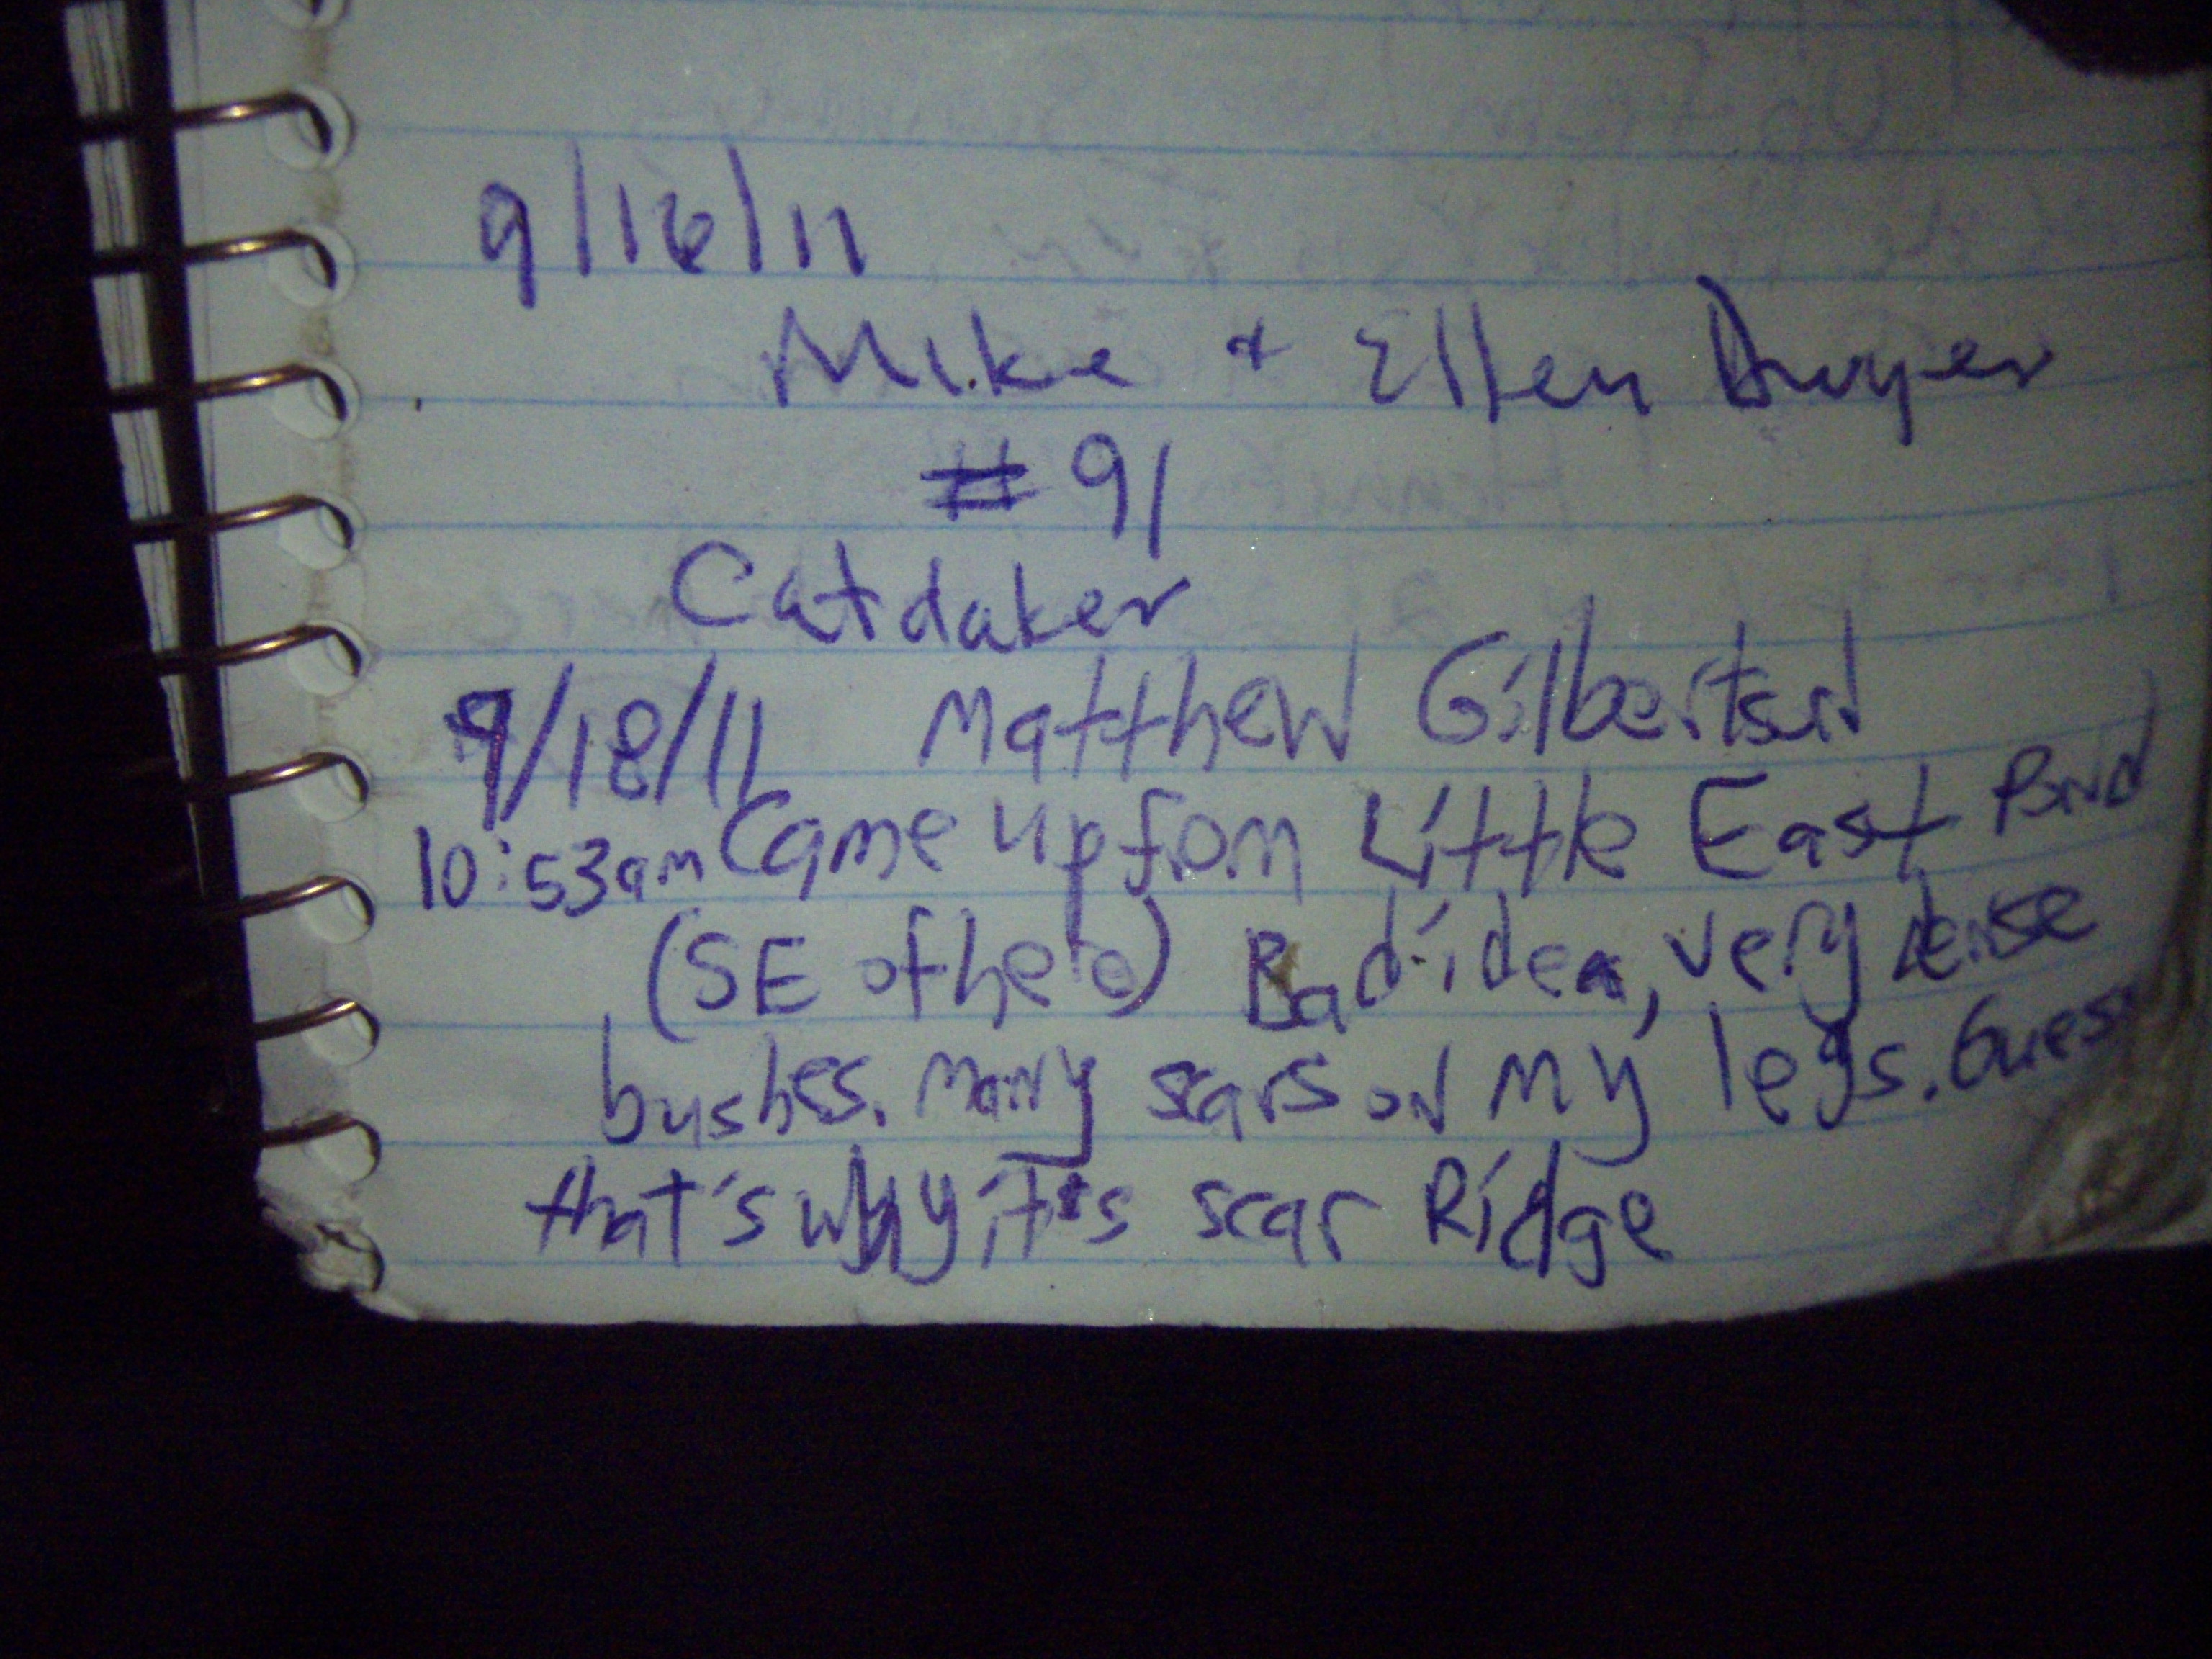 9/16/11
Mike + Ellen Dwyer
# 91
Catdaker
9/18/11 Matthew Gilbertson
10:53am Came up from Little East Pond
(SE of here) Bad idea, very dense
bushes. Many scars on my legs. Guess
that's why it's scar Ridge